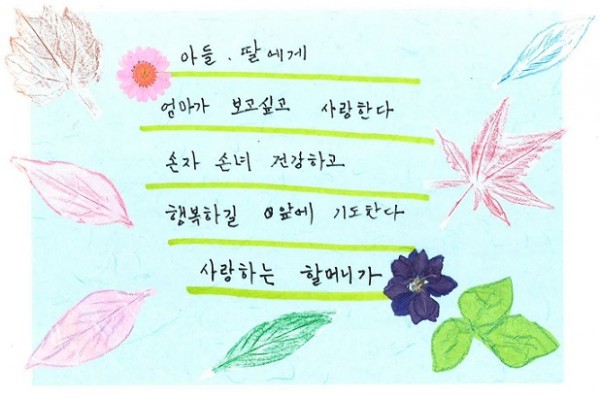 아들. 딸에게
엄마가 보고싶고 사랑한다
손자 손녀 건강하고
행복하길 앞에 기도한다
사랑하는 할머니가